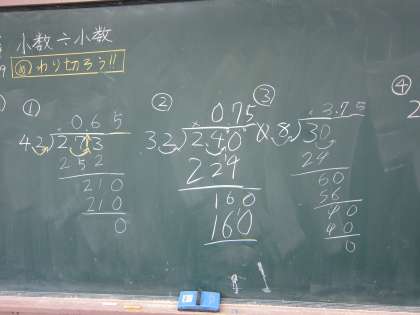 小数÷小数
め わり切ろう!!
①
0.65
4.2)2.73
252
210
210
0
②
0.75
3.2)2.40
224
160
160
③
3.75
0.8)30
24
60
56
40
40
0
④
2